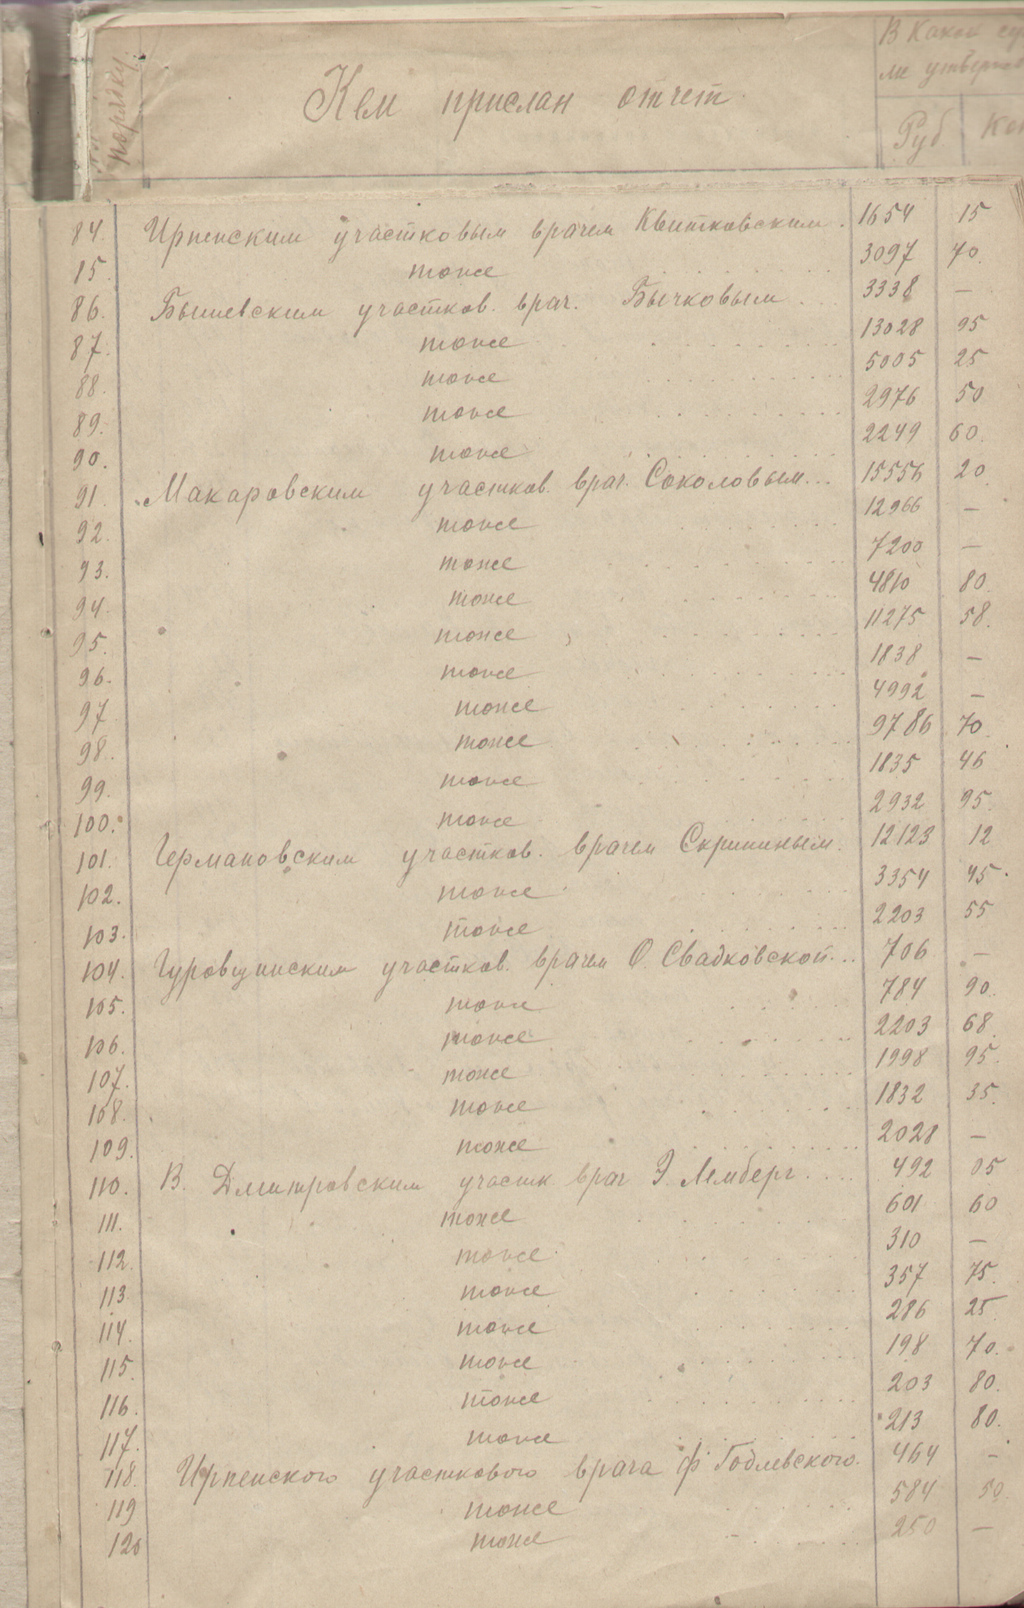 порядку
Кем прислан отчет
В какой су
ме утвержд
Руб
Коп
84. Ирпенским участковым врачем Квитковским. 1654 15
85. тоже 3097 70.
86. Бышевским участков. врач. Бычковым 3338 —
87. тоже 13028 95
88. тоже 5005 25
89. тоже 2976 50
90. тоже 2249 60.
91. Макаровским участков. врач. Соколовым... 15556 20
92. тоже 12966 —
93. тоже 7200 —
94. тоже 4810 80
95. тоже 11275 58.
96. тоже 1838 —
97 тоже 4992 —
98. тоже 9786 70
99. тоже 1835 46
100. тоже 2932 95.
101. Германовским участков. врачем Скрипиным. 12123 12
102. тоже 3354 45.
103. тоже 2203 55
104. Гуровщинским участков. врачем О. Свадковской... 706 —
105. тоже 784 90.
106. тоже 2203 68.
107. тоже 1998 95.
108. тоже 1832 35.
109. тоже 2028 —
110. В. Дмитровским участк врач Э Лемберг.... 492 05
111. тоже 601 60
112. тоже 310 —
113 тоже 357 75.
114. тоже 286 25
115. тоже 198 70.
116. тоже 203 80.
117. тоже 213 80.
118. Ирпенского участкового врача Ф Годлевского. 464 -
119 тоже 584 50
120 тоже 250 —